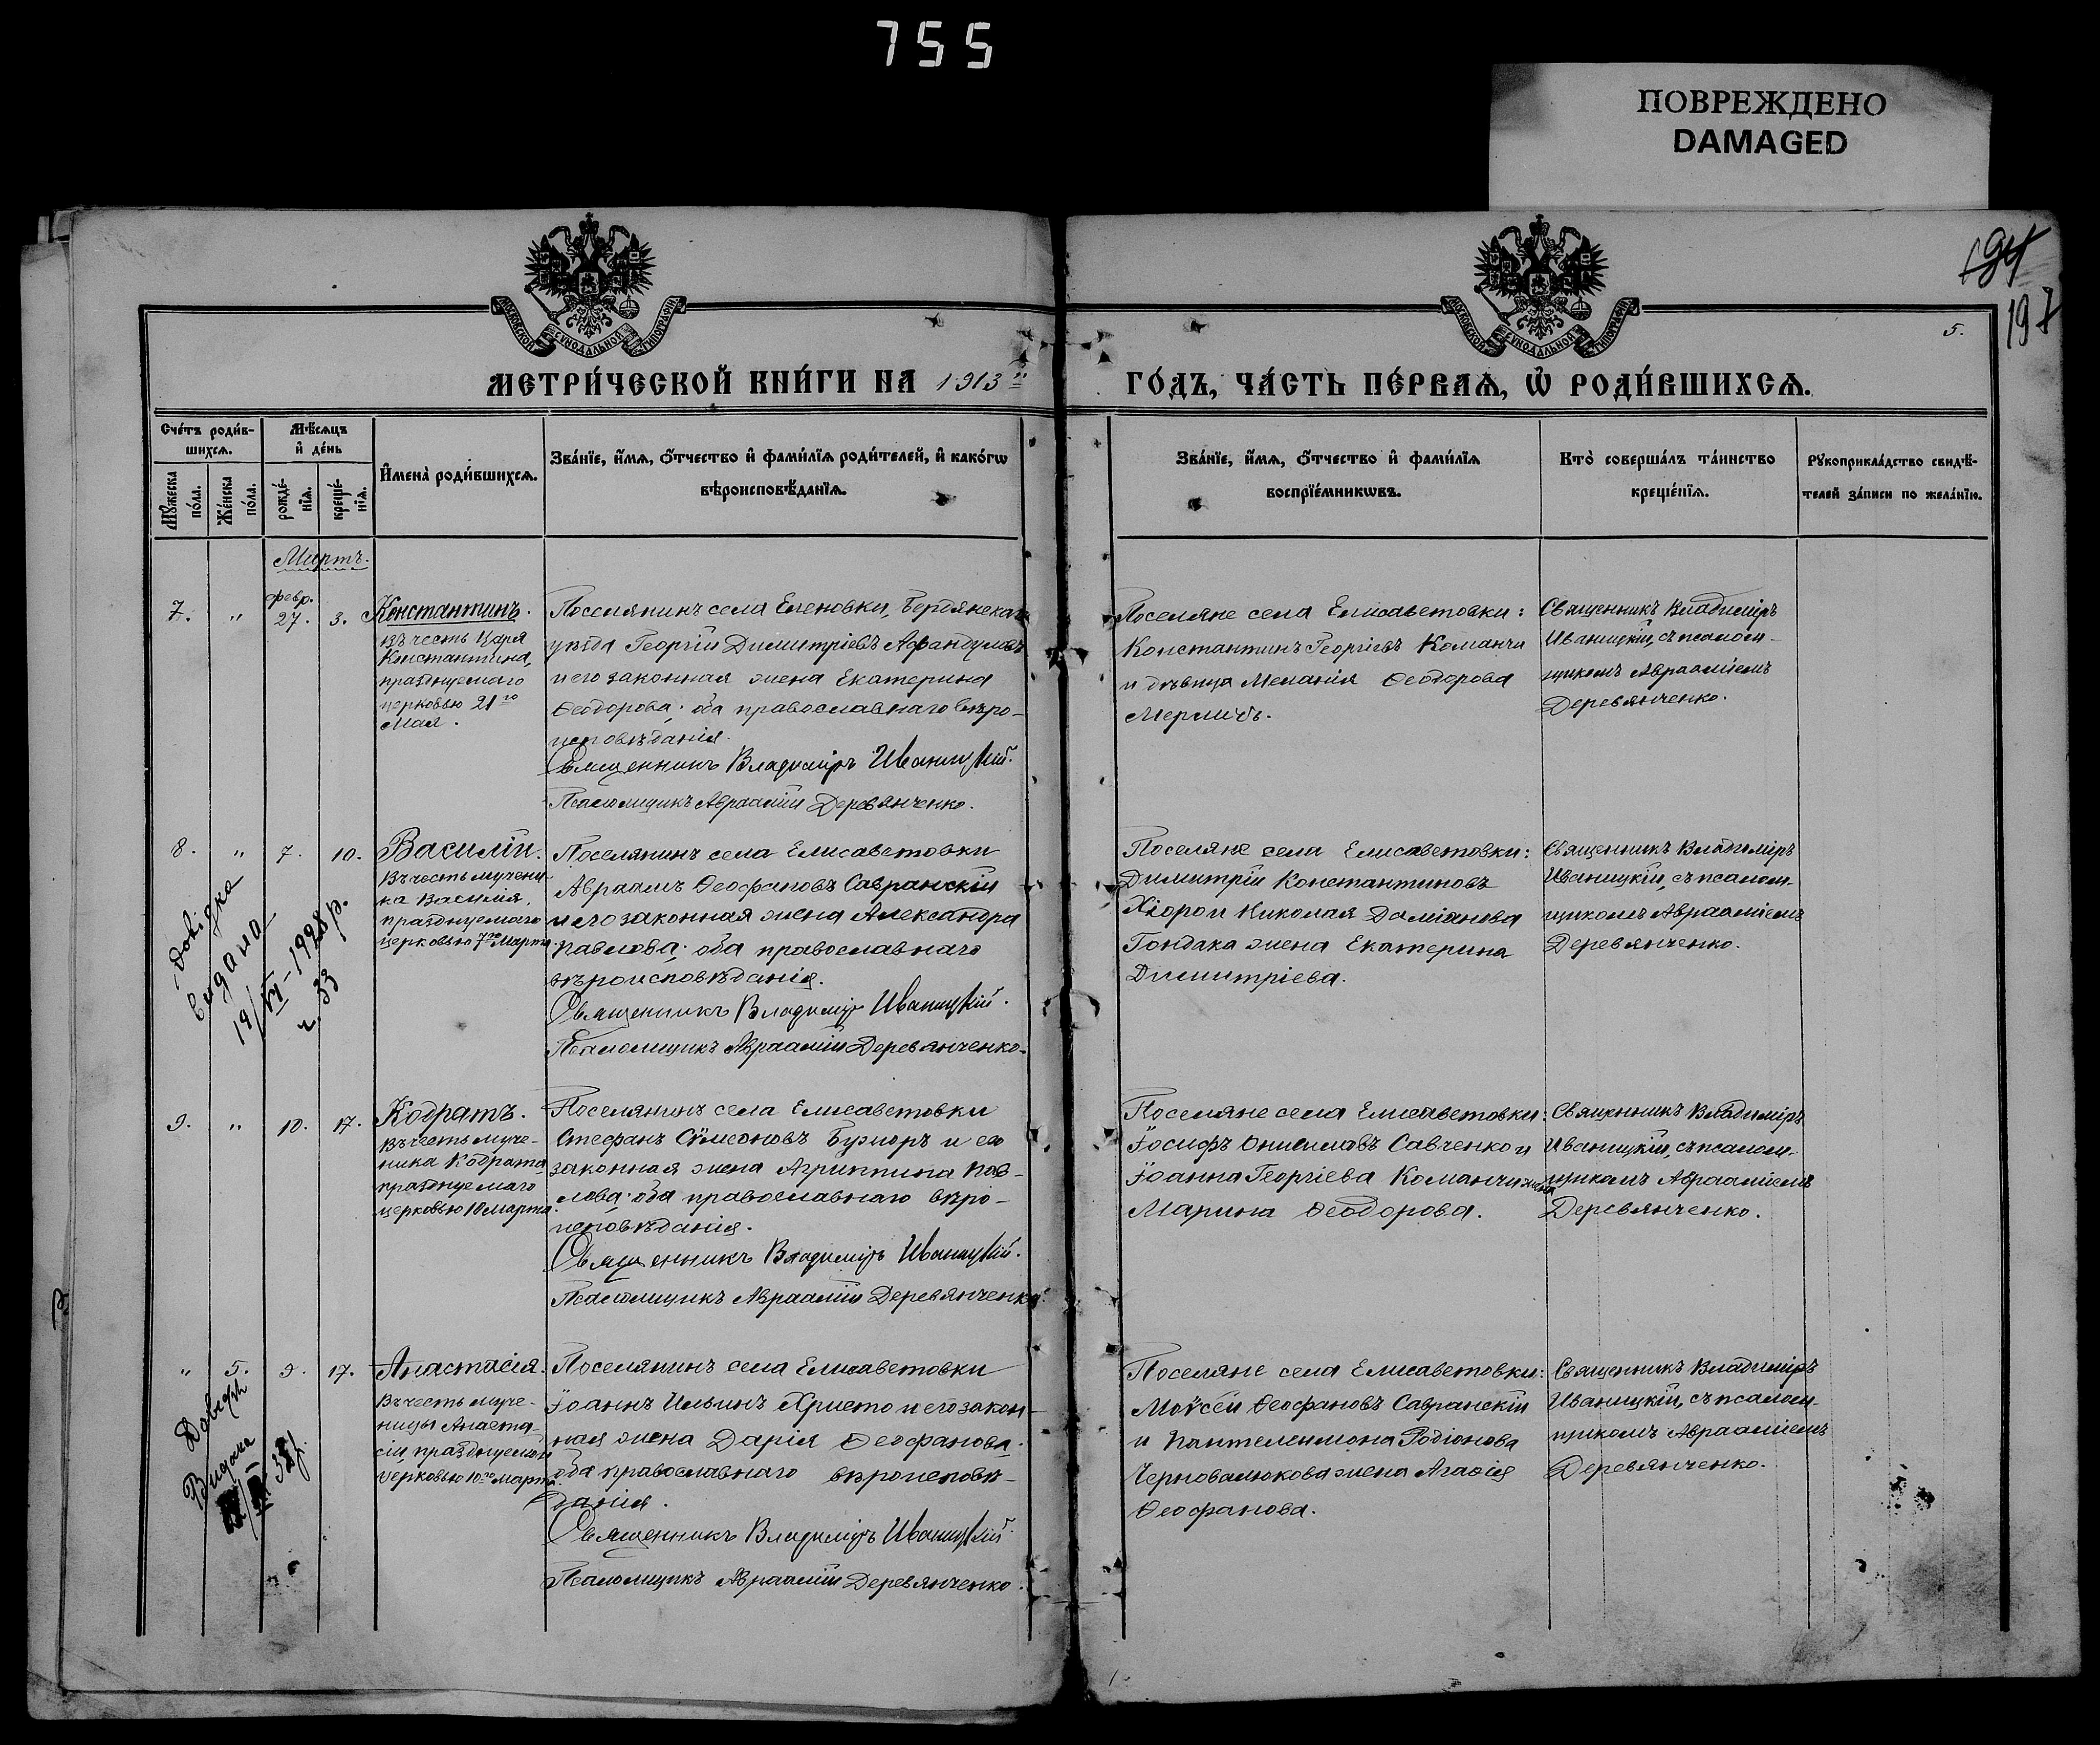 755
ПОВРЕЖДЕНО
DAMAGED
194
197
5.
МОСКОВСКОЙ СѴНОДАЛЬНОЙ ТИПОГРАФІИ
МОСКОВСКОЙ СѴНОДАЛЬНОЙ ТИПОГРАФІИ
МЕТРИ́ЧЕСКОЙ КНИ́ГИ НА 1913й
ГО́ДЪ, ЧА́СТЬ ПЕ́РВАѦ, Ѽ РОДИ́ВШИХСѦ.
Сче́тъ роди́в-
шихсѧ.
Мꙋ́жеска по́ла.
Же́нска по́ла.
Мѣ́сѧцъ
и҆ де́нь
рожде́-
нїѧ.
креще́-
нїѧ.
И҆мена̀ роди́вшихсѧ.
Зва́нїе, и҆́мѧ, ѻ҆́тчество и҆ фами́лїѧ роди́телей, и҆ како́гѡ
вѣроисповѣ́данїѧ.
Зва́нїе, и҆́мѧ, ѻ҆́тчество и҆ фами́лїѧ
воспрїе́мникѡвъ.
Кто̀ соверша́лъ та́инство
креще́нїѧ.
Рꙋкоприкла́дство свидѣ́-
телей за́писи по жела́нїю.
Мартъ.
7.
"
февр.
27.
3.
Константинъ.
Въ честь Царя
Константина,
празднуемаго
церковью 21го
Мая.
Поселянинъ села Еленовки, Бердянскаго
уѣзда Георгій Димитріевъ Афандуловъ
и его законная жена Екатерина
Ѳеодорова; оба православнаго вѣро-
исповѣданія.
Священникъ Владиміръ Иваницкій.
Псаломщикъ Авраамій Деревянченко.
Поселяне села Елисаветовки:
Константинъ Георгіевъ Команчи
и дѣвица Меланія Ѳеодорова
Священникъ Владиміръ
Иваницкій, съ псалом-
щикомъ Авраамiемъ
Деревянченко.
8.
"
7.
10.
Василій.
Въ честь мучени-
ка Василія,
празднуемаго
церковью 7го Марта.
Поселянинъ села Елисаветовки
Авраамъ Ѳеофановъ Савранскій
и его законная жена Александра
Павлова; оба православнаго
вѣроисповѣданія.
Священникъ Владиміръ Иваницкій.
Псаломщикъ Авраамій Деревянченко.
Поселяне села Елисаветовки:
Димитрій Константиновъ
Хіорои Николая Даміанова
Гондака жена Екатерина
Димитріева.
Священникъ Владиміръ
Иваницкій, съ псалом-
щикомъ Авраамiемъ
Деревянченко.
довідка
видана
19/VI-1928 р.
ч. 33
9.
"
10.
17.
Кодратъ.
Въ честь муче-
ника Кодрата,
празднуемаго
церковью 10 Марта.
Поселянинъ села Елисаветовки
Стефанъ Сѵмеоновъ Бузиоръ и его
законная жена Агриппина Пав-
лова; оба православнаго вѣро-
исповѣданія.
Священникъ Владиміръ Иваницкій.
Псаломщикъ Авраамій Деревянченко.
Поселяне села Елисаветовки:
Іосифъ Онисимовъ Савченко и
Іоанна Георгіева Команчи жена
Марина Ѳеодорова.
Священникъ Владиміръ
Иваницкій, съ псалом-
щикомъ Авраамiемъ
Деревянченко.
"
5.
9.
17.
Анастасія.
Въ честь муче-
ницы Анаста-
сіи, празднуемой
церковью 10го Марта.
Поселянинъ села Елисаветовки
Іоаннъ Ильинъ Христо и его закон-
ная жена Дарія Ѳеофанова;
оба православнаго вѣроисповѣ-
данія.
Священникъ Владиміръ Иваницкій.
Псаломщикъ Авраамій Деревянченко.
Поселяне села Елисаветовки:
Моѵсей Ѳеофановъ Савранскій
и Пантелеимона Родіонова
Черновалюкова жена Агаѳія
Ѳеофанова.
Священникъ Владиміръ
Иваницкій, съ псалом-
щикомъ Авраамiемъ
Деревянченко.
Видана